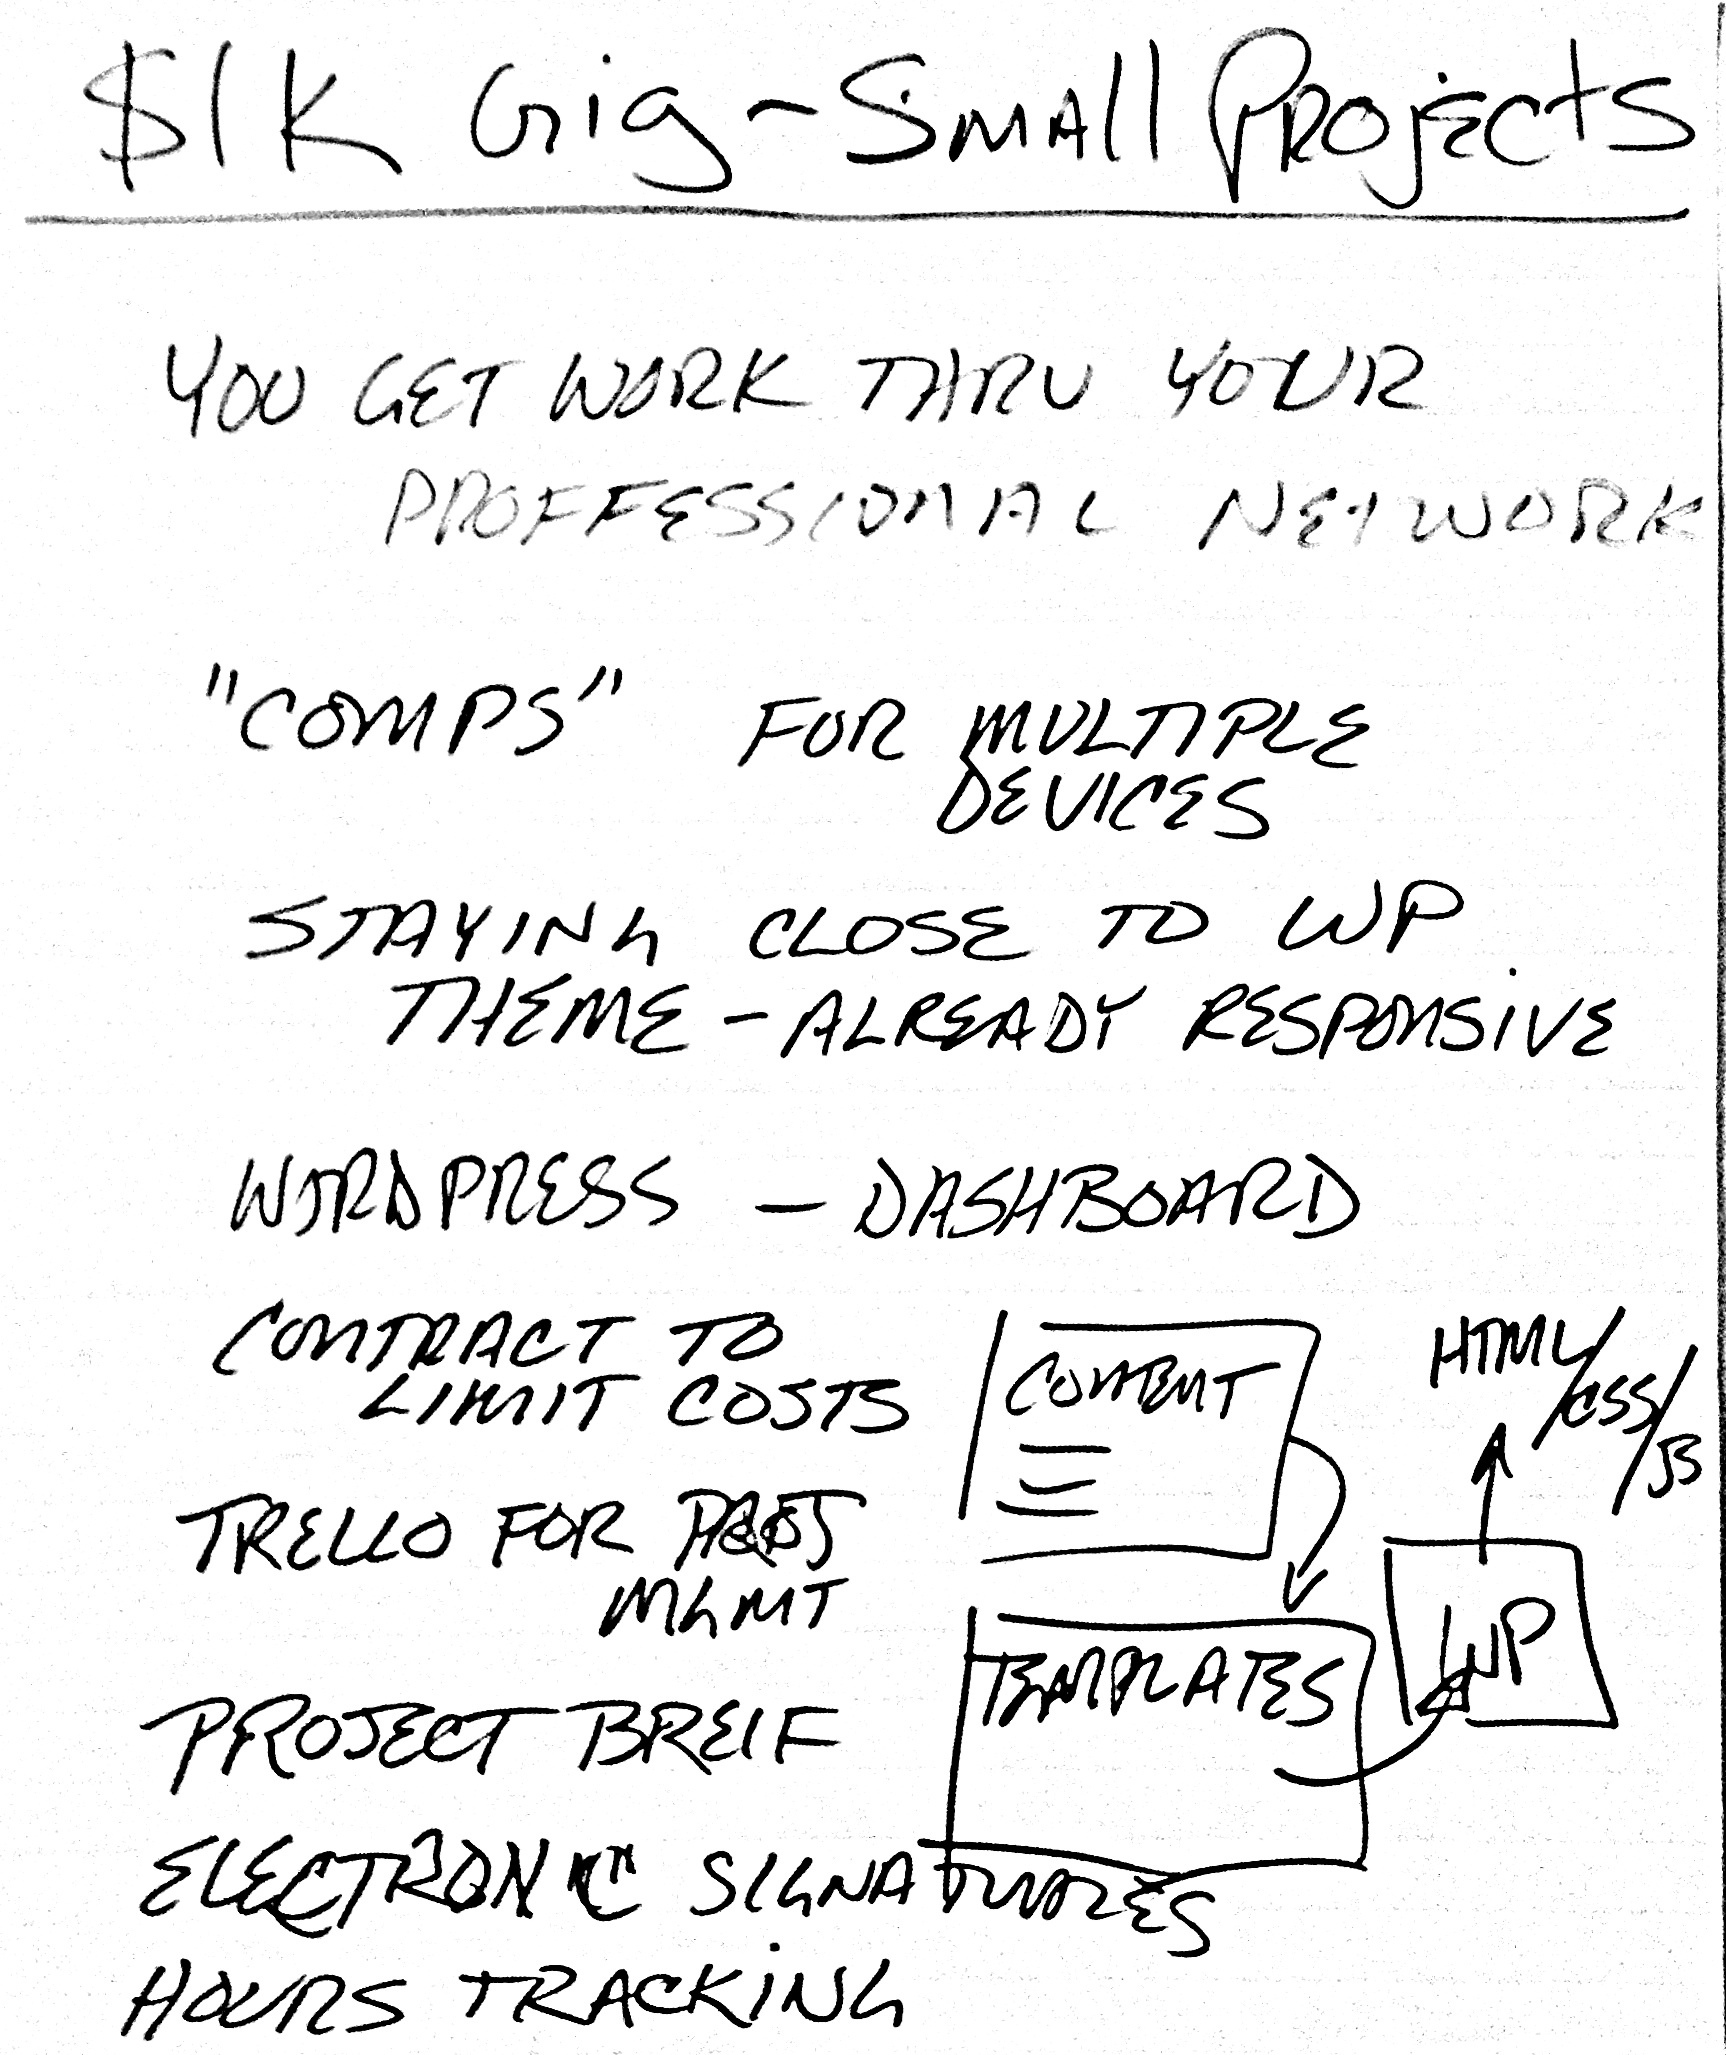 $1K Gig - Small Projects
YOU GET WORK THRU YOUR
PROFFESSIONAL NETWORK
"COMPS" FOR MULTIPLE
DEVICES
STAYING CLOSE TO WP
THEME - ALREADY RESPONSIVE
WORDPRESS - DASHBOARD
CONTRACT TO
LIMIT COSTS
TRELLO FOR PROJ
MGMT
PROJECT BREIF
ELECTRONIC SIGNATURES
HOURS TRACKING
CONTENT
TEMPLATES
WP
HTML/CSS/JS